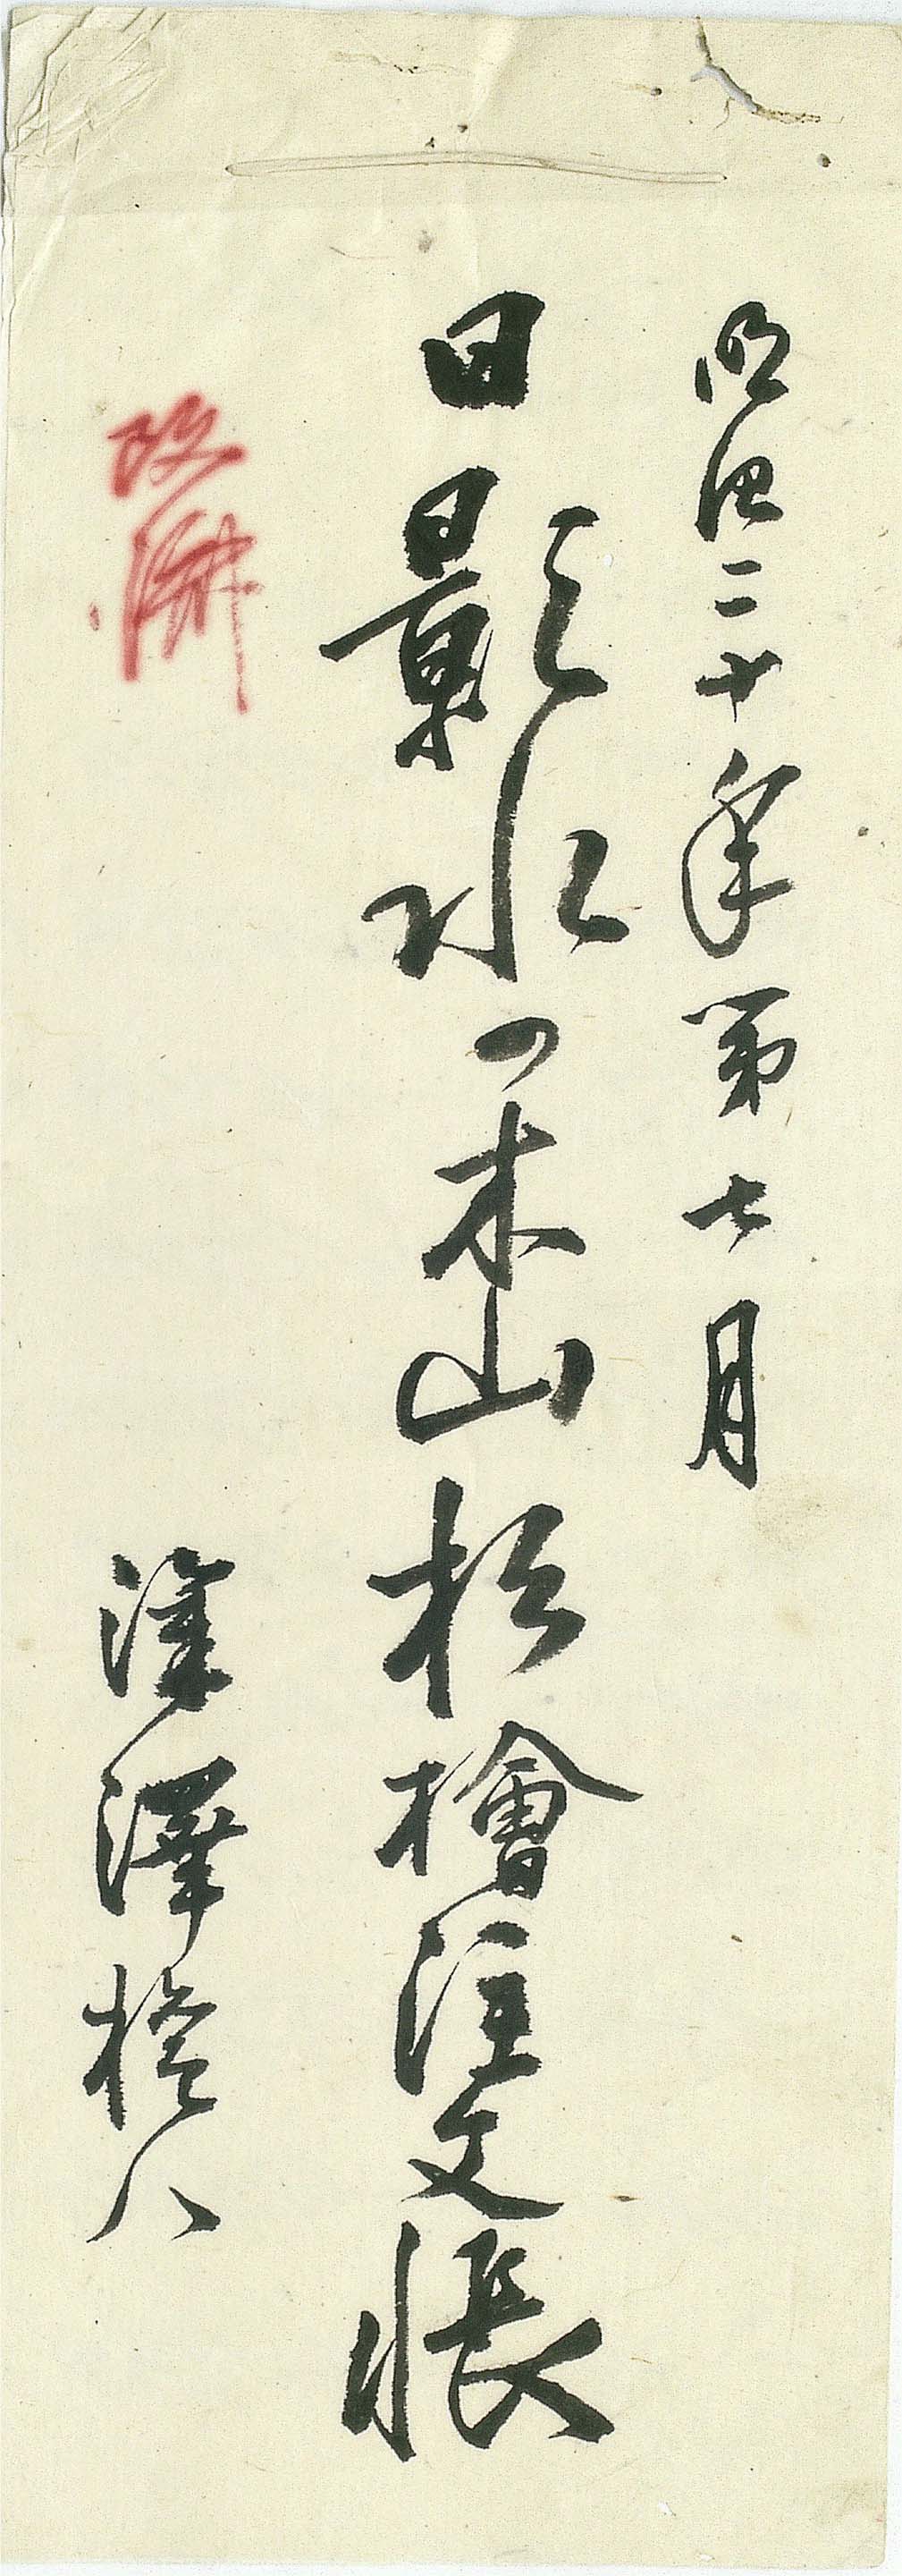 明治二十年第七月
日影水の木山杉檜注文帳
深澤権八
改済